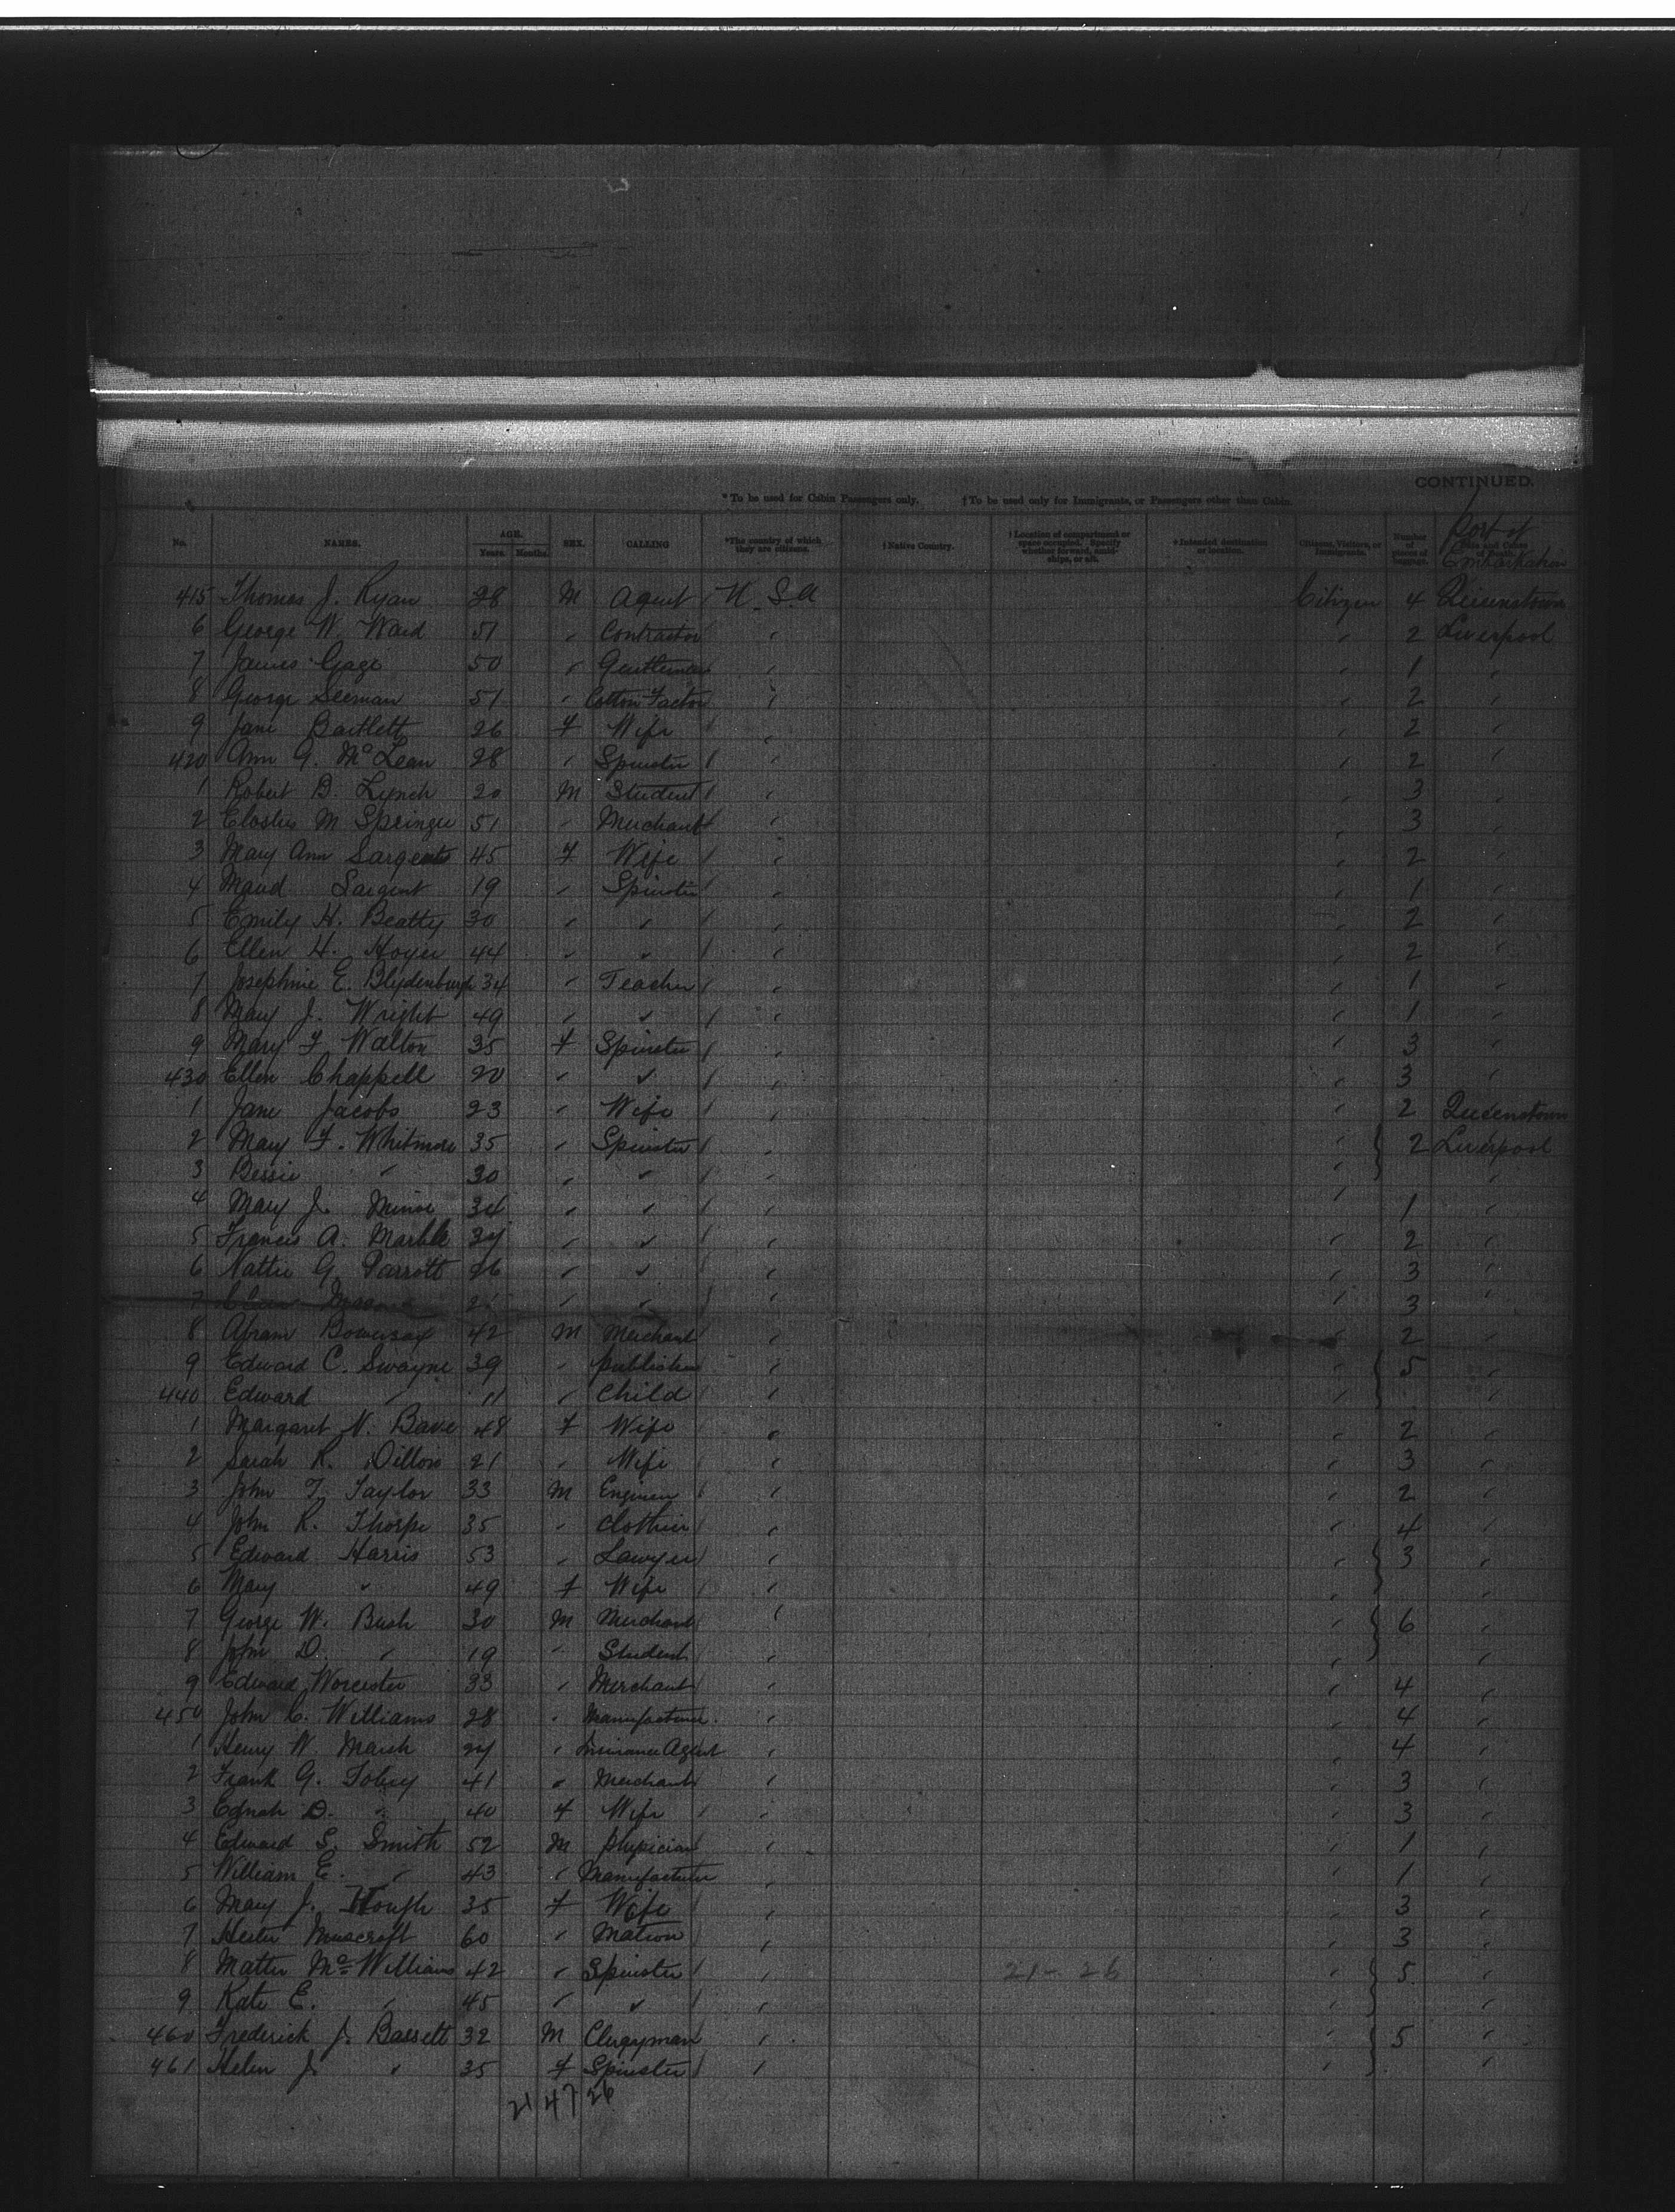 CONTINUED.
*To be used for Cabin Passengers only. †To be used only for Immigrants, or Passengers other than Cabin.
No. NAMES. AGE. Years. Months. SEX. CALLING *The country of which they are citizens. †Native Country. †Location of compartment or space occupied. Specify whether forward, amidships, or aft. †Intended destination or location. Citizens, Visitors, or Immigrants. Number of pieces of baggage. Port of Embarkation
415 Thomas J. Ryan 28 M Agent U.S.A Citizen 4 Queenstown
6 George W. Ward 51 " Contractor " " 2 Liverpool
7 James Gage 50 " Gentleman " " 1 "
8 George Seeman 51 " Cotton Factor " " 2 "
9 Jane Bartlett 26 F Wife " " 2 "
420 Ann G. McLean 28 " Spinster " " 2 "
1 Robert D. Lynch 20 M Student " " 3 "
2 M Springer 51 " Merchant " " 3 "
3 Mary Ann Sargent 45 F Wife " " 2 "
4 Maud Sargent 19 " Spinster " " 1 "
5 Emily H. Beatty 30 " " " " 2 "
6 Ellen H. Hoyer 44 " " " " 2 "
7 Josephine E. Blydenburgh 34 " Teacher " " 1 "
8 Mary J. Wright 49 " " " " 1 "
9 Mary F. Walton 35 F Spinster " " 3 "
430 Ellen Chappell 20 " " " " 3 "
1 Jane Jacobs 23 " Wife " " 2 Queenstown
2 Mary F. Whitmore 35 " Spinster " " 2 Liverpool
3 Bessie " 30 " " " " "
4 Mary J. Minor 34 " " " " 1 "
5 Francis A. Marble " " " " 2 "
6 Nattie G Parrott 26 " " " " 3 "
7 " " " " 3 "
8 Abram Bowersox 42 M Merchant " " 2 "
9 Edward C. Swayne 39 " publisher " " 5 "
440 Edward " 11 " Child " " "
1 Margaret N. Bave 48 F Wife " " 2 "
2 Sarah R. Dillon 21 " Wife " " 3 "
3 John T. Taylor 33 M Engineer " " 2 "
4 John R. Thorpe 35 " Clothier " " 4 "
5 Edward Harris 53 " Lawyer " " 3 "
6 Mary " 49 F Wife " " "
7 George W. Bush 30 M Merchant " " 6 "
8 John D. " 19 " Student " "
9 Edward Worcester 33 " Merchant " 4 "
450 John C. Williams 28 " Manufacturer " " 4 "
1 Henry W. Marsh " Insurance Agent " " 4 "
2 Frank G. Tobey 41 " Merchant " " 3 "
3 Ednah D. " 40 F Wife " " 3 "
4 Edward S. Smith 52 M Physician " " 1 "
5 William E. " 43 " Manufacturer " " 1 "
6 Mary J. Hough 35 F Wife " " 3 "
7 Hester Muscroft 60 " Matron " " 3 "
8 McWilliams 42 " Spinster " 21-26 " 5 "
9 Kate E. " 45 " " " " "
460 Frederick J. Bassett 32 M Clergyman " " 5 "
461 Helen J. " 35 F Spinster " " "
21 47 26